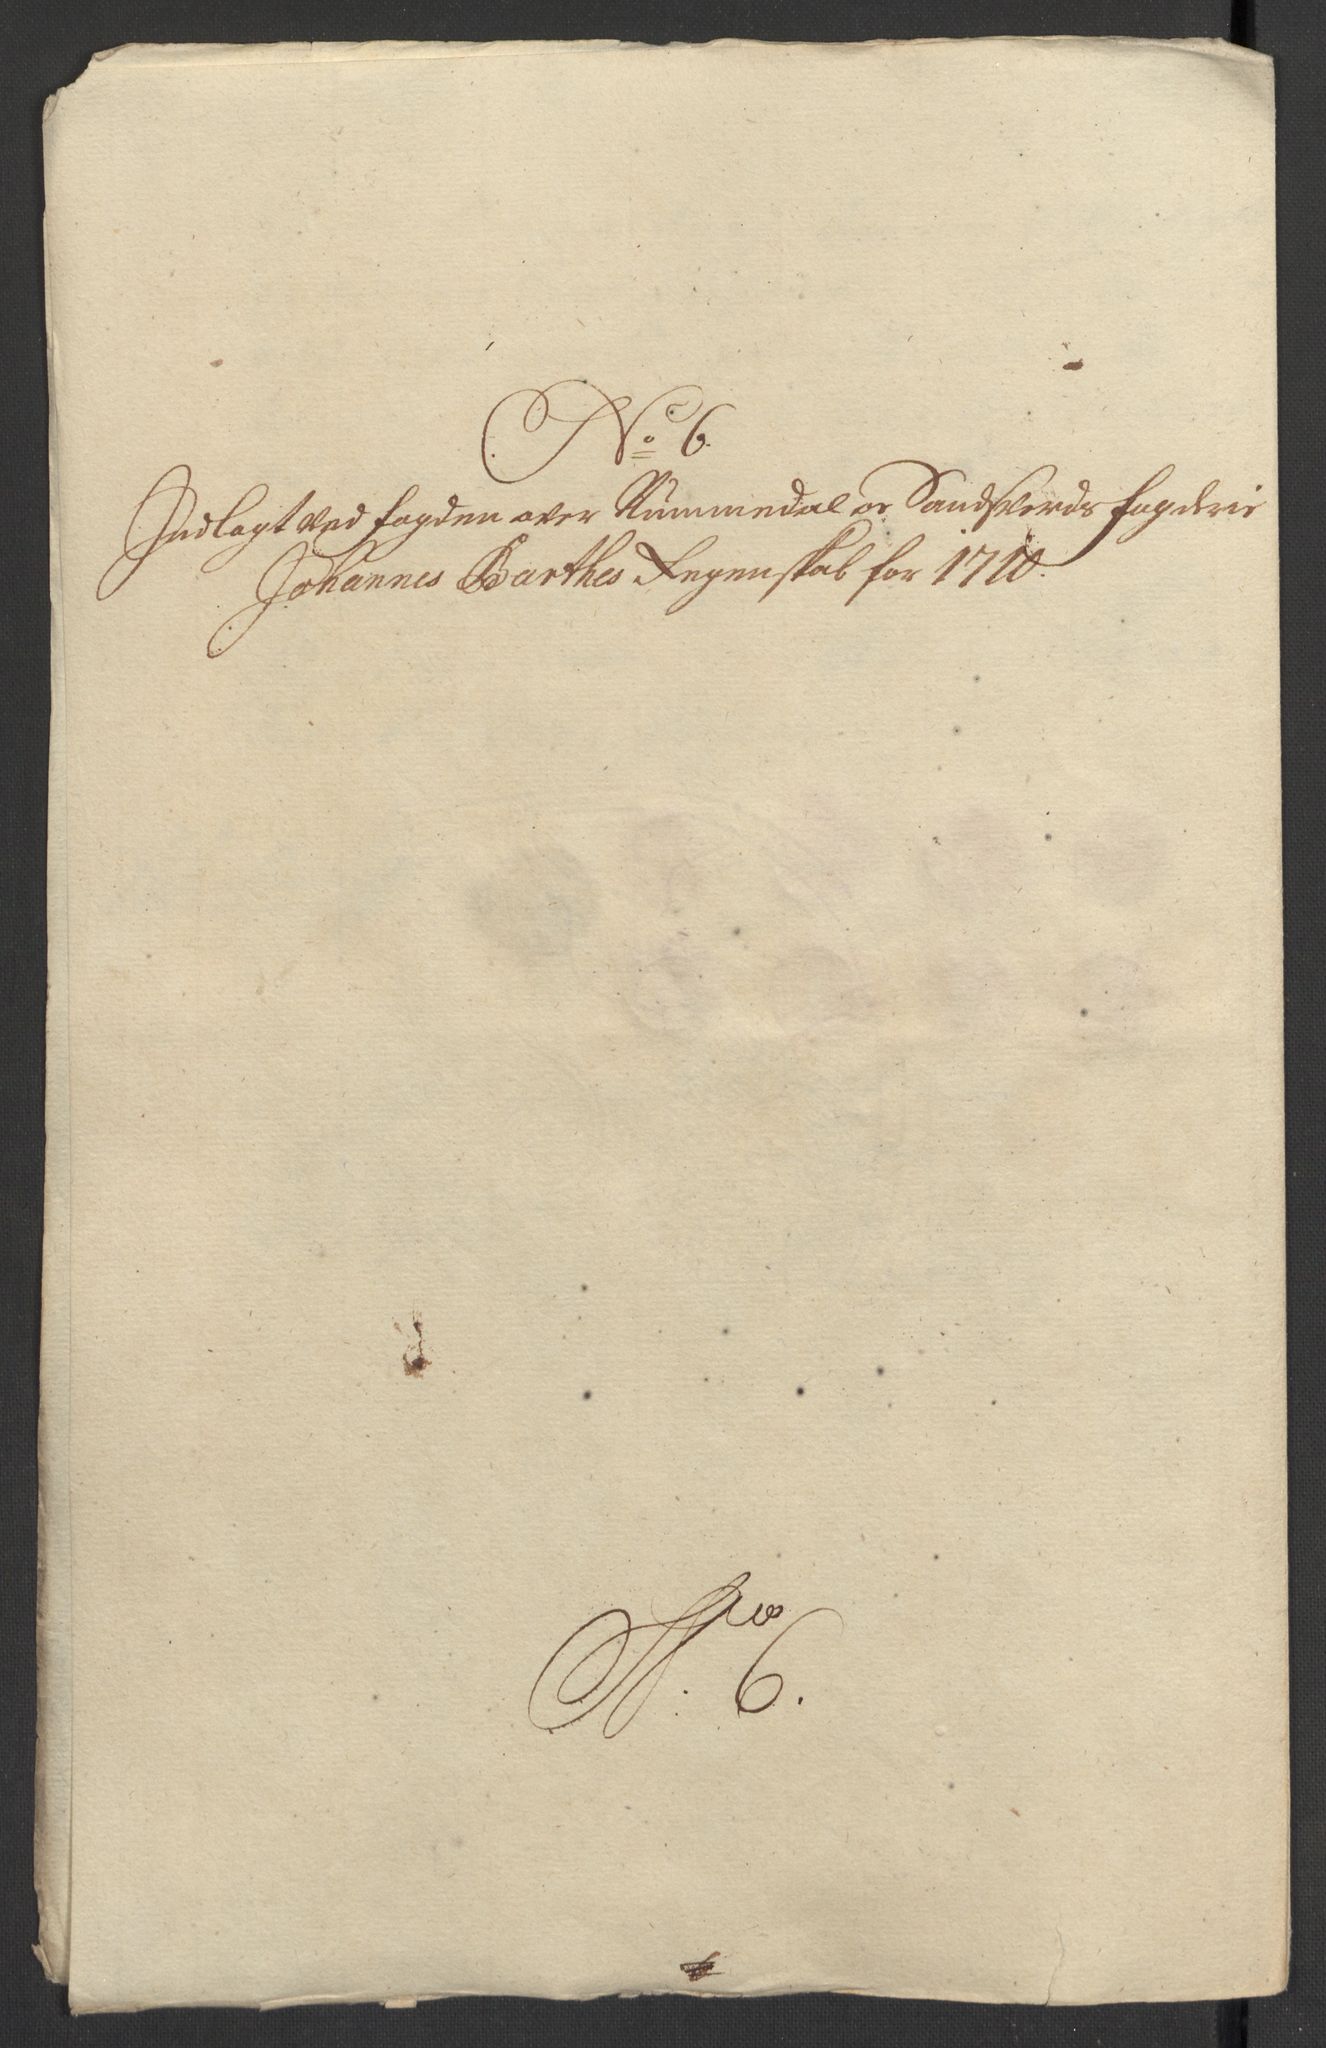 No 6
Indlagt ved fogden over Nummedal oc Sandsverds fogderie
Johannes Barthes Regenskab for 1710.
No 6.